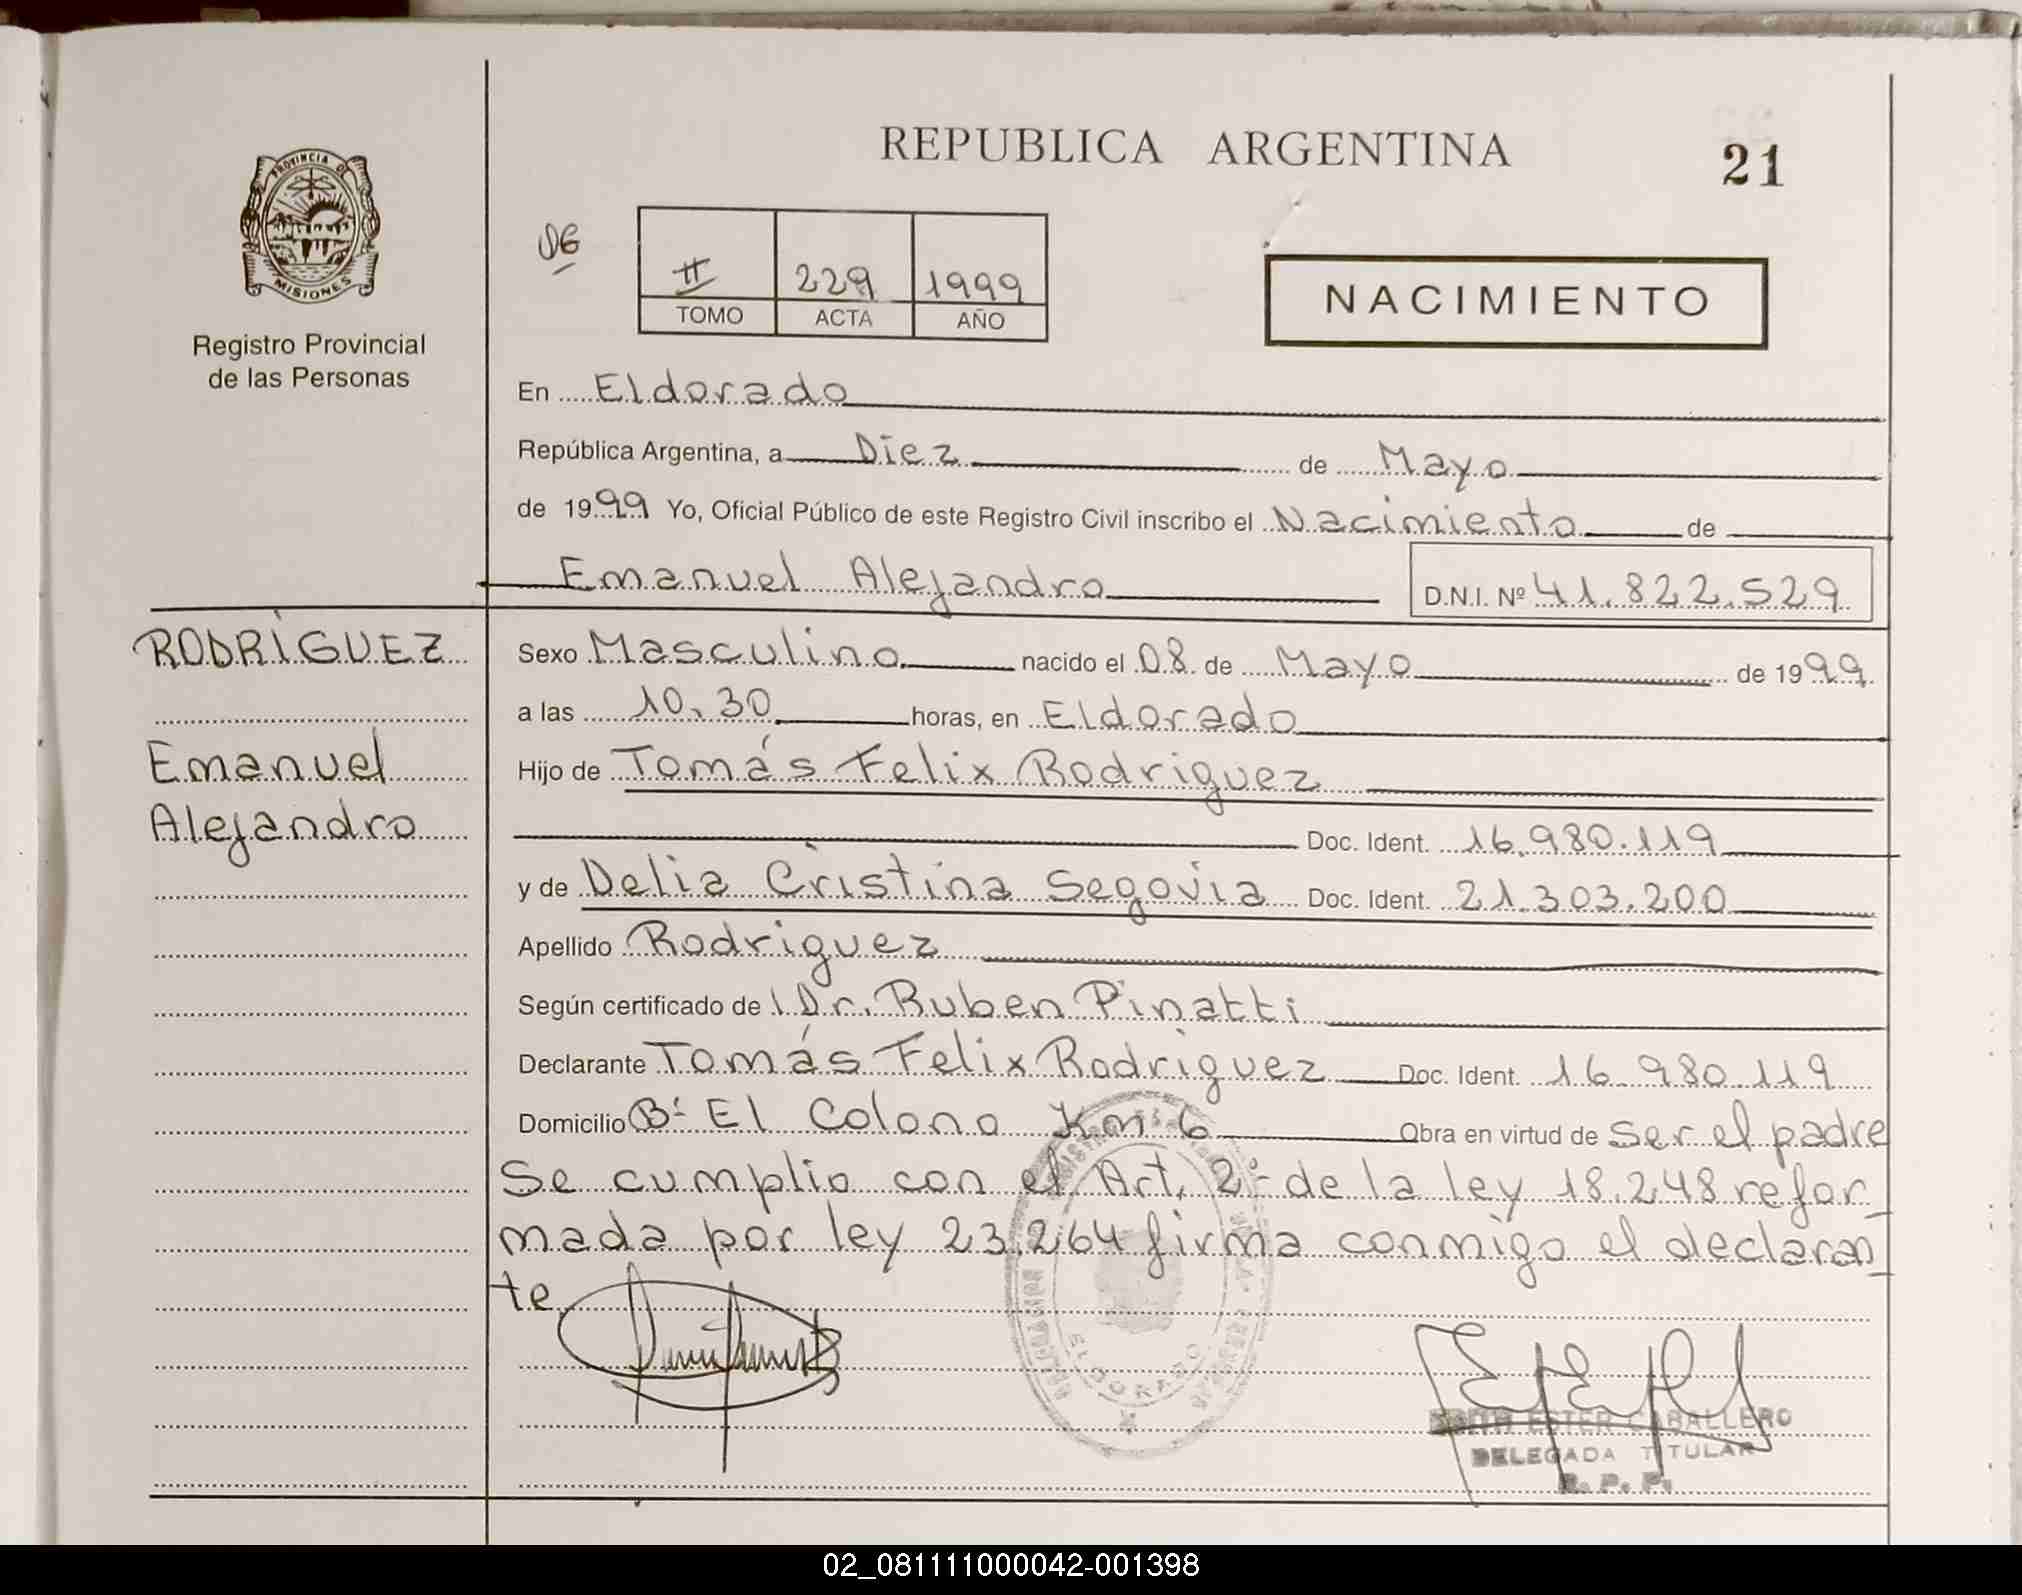 REPUBLICA ARGENTINA
21
PROVINCIA DE
MISIONES
Registro Provincial
de las Personas
06
II 229 1999
TOMO ACTA AÑO
NACIMIENTO
En Eldorado
República Argentina, a Diez de Mayo
de 1999 Yo, Oficial Público de este Registro Civil inscribo el Nacimiento de
Emanuel Alejandro D.N.I. Nº 41.822.529
RODRÍGUEZ
Emanuel
Alejandro
Sexo Masculino nacido el 08 de Mayo de 1999
a las 10,30 horas, en Eldorado
Hijo de Tomás Felix Rodriguez
Doc. Ident. 16.980.119
y de Delia Cristina Segovia Doc. Ident. 21.303.200
Apellido Rodriguez
Según certificado de Dr. Ruben Pinatti
Declarante Tomás Felix Rodriguez Doc. Ident. 16.980.119
Domicilio Bº El Colono Km 6 Obra en virtud de ser el padre
Se cumplio con el Art. 2º de la ley 18.248 refor_
mada por ley 23.264 firma conmigo el declaran_
te
ELDORADO
EDITH ESTER CABALLERO
DELEGADA TITULAR
R. P. P.
02_081111000042-001398